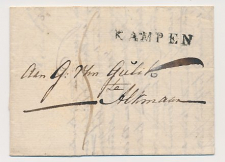 KAMPEN
Aen G: Wm Gülik
te
Alkmaar